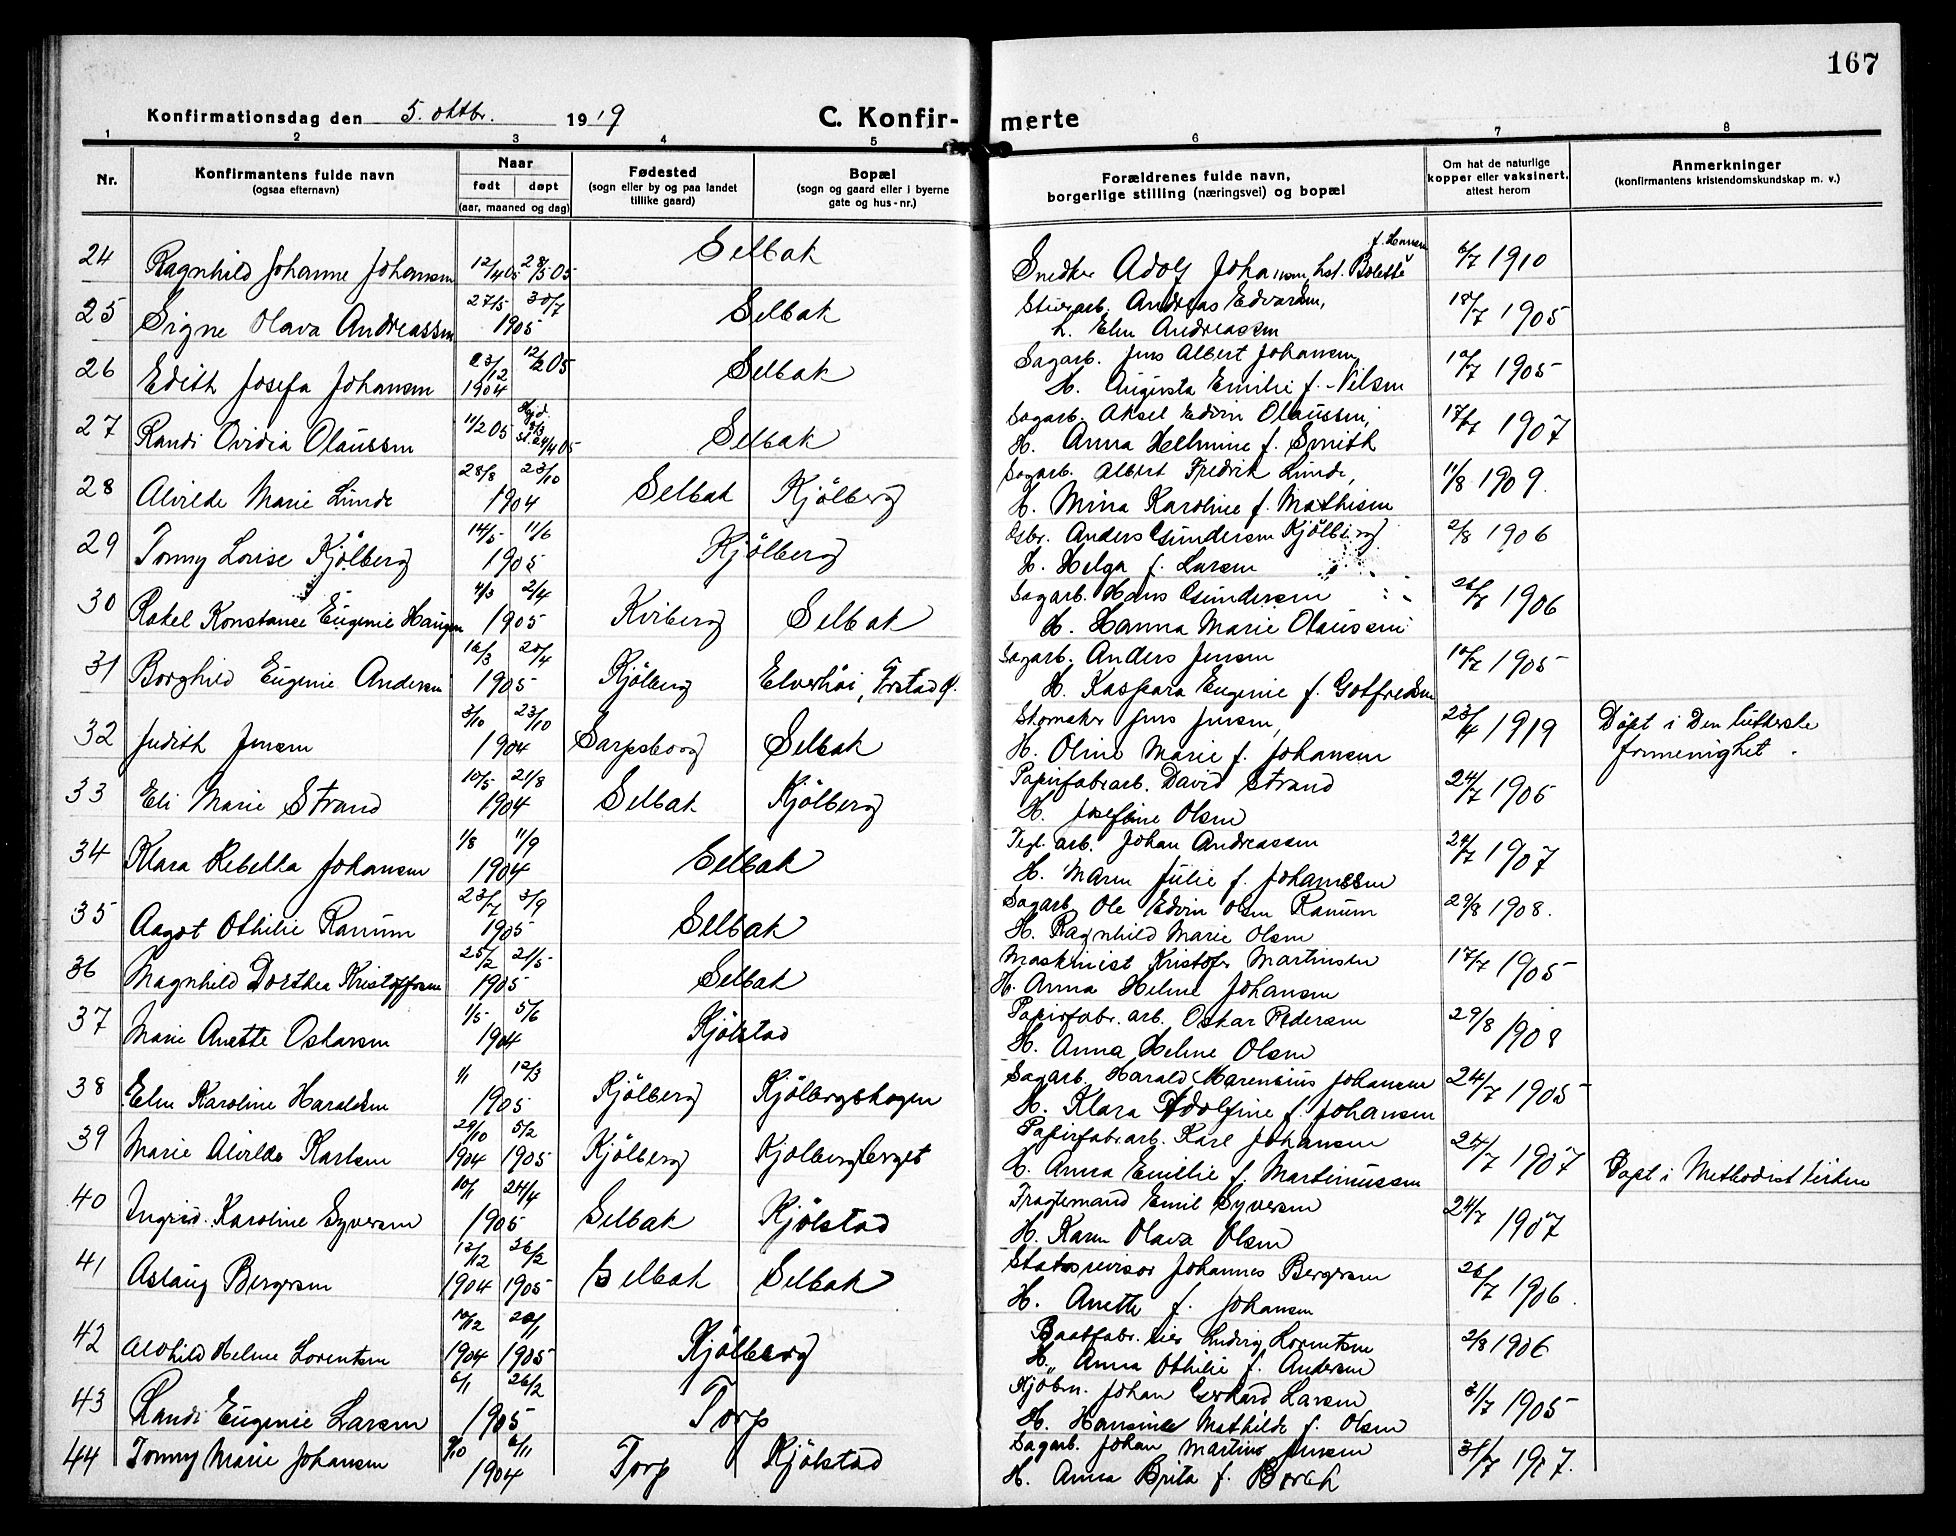 167
Konfirmationsdag den 5. oktbr. 1919 C. Konfir- merte
1 2 3 4 5 6 7 8
Nr. Konfirmantens fulde navn (ogsaa efternavn) Naar født døpt (aar, maaned og dag) Fødested (sogn eller by og paa landet tillike gaard) Bopæl (sogn og gaard eller i byerne gate og hus-nr.) Forældrenes fulde navn, borgerlige stilling (næringsvei) og bopæl Om hat de naturlige kopper eller vaksinert, attest herom Anmerkninger (konfirmantens kristendomskundskap m. v.)
24 Ragnhild Johanne Johansen 12/4 05 28/5 05 Selbak Snedker Adolf Johansen, hst. Bolette f. Hansen 6/7 1910
25 Signe Olava Andreassen 27/5 30/7 1905 Selbak Andreas Edvardsen, h. Elen Andreassen 18/7 1905
26 Edith Josefa Johansen 23/12 1904 12/2 05 Selbak Sagarb. Jens Albert Johansen, H. Augusta Emilie f. Nilsen 10/7 1905
27 Randi Ovidia Olaussen 11/2 05 24/4 05 Selbak Sagarb. Aksel Edvin Olaussen, H. Anna Helmine f. Smith 1907
28 Alvilde Marie Lunde 28/8 23/10 1904 Selbak Kjölberg Sagarb. Albert Fredrik Lunde, H. Mina Karoline f. Mathisen 11/8 1909.
29 Tonny Lovise Kjölberg 14/5 11/6 1905 Kjölberg Gsbr. Anders Gundersen Kjölberg H. Helga f. Larsen 2/8 1906
30 Rakel Konstanse Eugenie Haugen 4/3 2/4 1905 Kviberg Selbak Sagarb. Hans Gundersen H. Hanna Marie Olaussen 26/7 1906
31 Borghild Eugenie Andersen 16/3 20/4 1905 Kjölberg Elverhöi, Frstad Sagarb. Anders Jensen H. Kaspara Eugenie f. Gotfredsen 10/7 1905
32 Judith Jensen 3/10 23/10 1904 Sarpsborg Selbak Skomaker Jens Jensen, H. Oline Marie f. Johansen 23/4 1919 Döpt i Den lutherske frimenighet.
33 Eli Marie Strand 10/5 21/8 1904 Selbak Kjölberg Papirfabrarb. David Strand H. Josefine Olsen 24/7 1905
34 Klara Rebekka Johansen 1/8 11/9 1904 Selbak Tegl. arb. Johan Andreassen H. Maren Julie f. Johanssen 24/7 1907
35 Aagot Othilie Ranum 23/7 3/9 1905 Selbak Sagarb. Ole Edvin Olsen Ranum H. Ragnhild Marie Olsen 29/8 1908.
36 Magnhild Dorthea Kristoffersen 25/2 21/5 1905 Selbak Maskinist Kristofer Martinsen H. Anna Helene Johansen 17/7 1905
37 Marie Anette Oskarsen 1/5 5/6 1904 Kjölstad Papirfabr. arb. Oskar Pedersen H. Anna Helene Olsen 29/8 1908
38 Elen Karoline Haraldsen 1/1 12/3 1905 Kjölberg Kjölbergskogen Sagarb. Harald Marensius Johansen H. Klara Adolfine f. Johansen 24/7 1905
39 Marie Alvilde Karlsen 29/10 1904 5/2 1905 Kjölberg Kjölbergberget Papirfabrarb. Karl Johansen H. Anna Emilie f. Martinussen 24/7 1907 Döpt i Methodistkirken
40 Ingrid Karoline Syversen 10/1 24/4 1905 Selbak Kjölstad Fragtemand Emil Syversen H. Karen Olava Olsen 24/7 1907
41 Aslaug Bergersen 12/12 1904 26/2 1905 Selbak Selbak Statsrevisor Johannes Bergersen H. Anette f. Johansen 26/7 1906.
42 Alvhild Helene Lorentsen 10/12 1904 1905 Kjölberg Baatfabr. eier Ludvig Lorentsen H. Anna Othilie f. Andersen 2/8 1906
43 Randi Eugenie Larsen 6/1 26/2 1905 Torp Kjöbm. Johan Gerhard Larsen H. Hansine Mathilde f. Olsen 1905
44 Tonny Marie Johansen 9/10 6/11 1904 Torp Kjölstad Sagarb. Johan Martin Jensen H. Anna Brita f. Borch 31/7 1907.